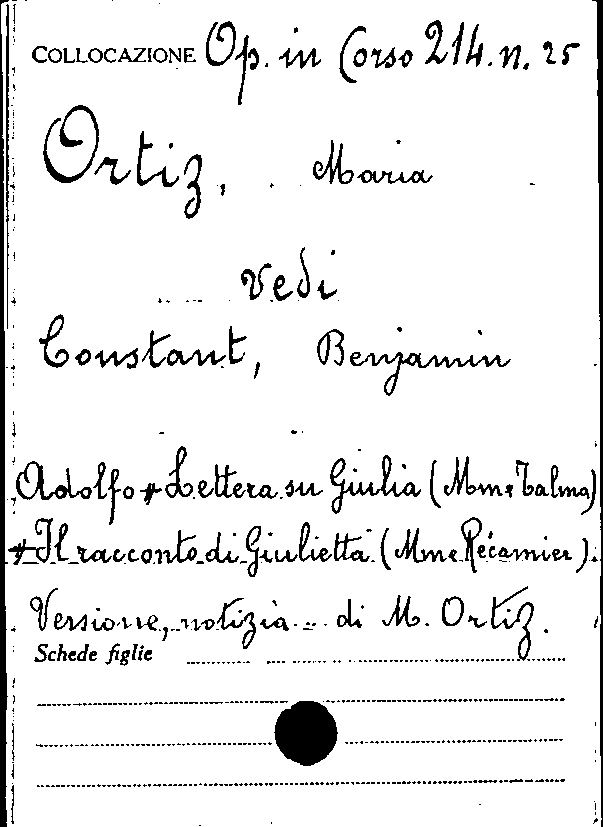 COLLOCAZIONE Op. in Corso 214. n. 25
Ortiz, Maria
Vedi
Constant, Benjamin
Adolfo # Lettera su Giulia (Mme Talma)
# Il racconto di Giulietta (Mme Récamier).
Versione, notizia ... di M. Ortiz.
Schede figlie